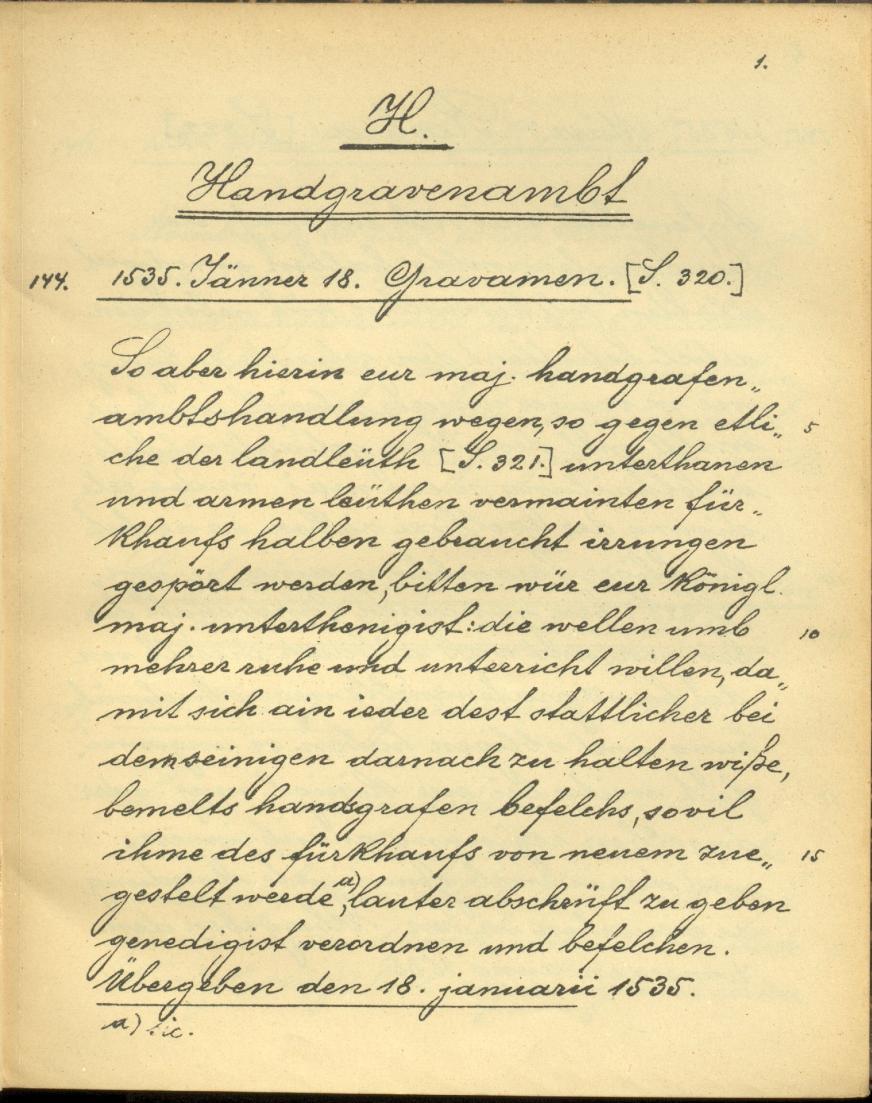 1.
H.
Handgravenambt
144. 1535. Jänner 18. Gravamen. [S. 320.]
So aber hierin eur maj. handgrafen„
ambtshandlung wegen, so gegen etli„ 5
che der landleüth [S. 321.] unterthanen
und armen leüthen vermainten für„
khaufs halben gebraucht irrungen
gespört werden, bitten wür eur königl.
maj. unterthenigist: die wellen umb 10
mehrer ruhe und unterricht willen, da„
mit sich ain ieder dest stattlicher bei
dem seinigen darnach zu halten wiße,
bemelts handsgrafen befelchs, sovil
ihme des fürkhaufs von neuem zue„ 15
gestelt werde a), lauter abschrüft zu geben
genedigist verordnen und befelchen.
Übergeben den 18. januarii 1535.
a) sic.